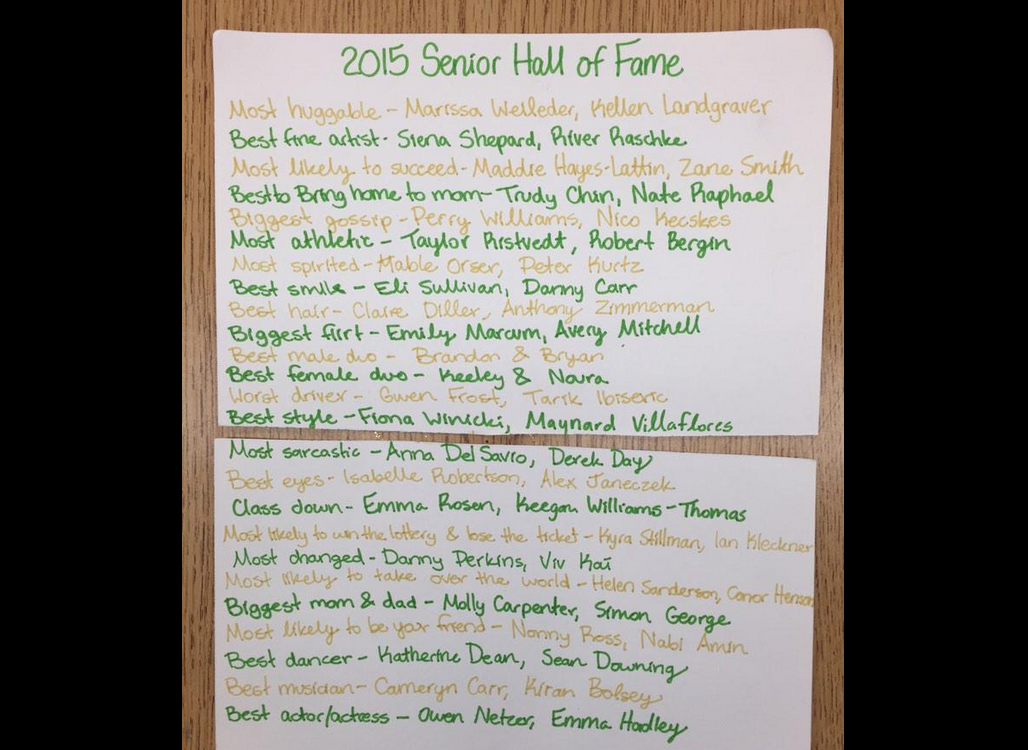 2015 Senior Hall of Fame
Most huggable - Marissa Welleder, Kellen Landgraver
Best fine artist - Siena Shepard, River Raschke
Most likely to succeed - Maddie Hayes-Lattin, Zane Smith
Best to Bring home to mom - Trudy Chin, Nate Raphael
Biggest gossip - Perry Williams, Nico Kecskes
Most athletic - Taylor Ristvedt, Robert Bergin
Most spirited - Mable Orser, Peter Kurtz
Best smile - Eli Sullivan, Danny Carr
Best hair - Claire Diller, Anthony Zimmerman
Biggest flirt - Emily Marcum, Avery Mitchell
Best male duo - Brandon & Bryan
Best female duo - Keeley & Noura
Worst driver - Gwen Frost, Tarik Ibiseric
Best style - Fiona Winicki, Maynard Villaflores
Most sarcastic - Anna Del Savio, Derek Day
Best eyes - Isabelle Robertson, Alex Janeczek
Class clown - Emma Rosen, Keegan Williams-Thomas
Most likely to win the lottery & lose the ticket - Kyra Stillman, Ian Kleckner
Most changed - Danny Perkins, Viv Kai
Most likely to take over the world - Helen Sanderson, Conor Henson
Biggest mom & dad - Molly Carpenter, Simon George
Most likely to be your friend - Nonny Ross, Nabi Amin
Best dancer - Katherine Dean, Sean Downing
Best musician - Cameryn Carr, Kiran Bolsey
Best actor/actress - Owen Netzer, Emma Hadley